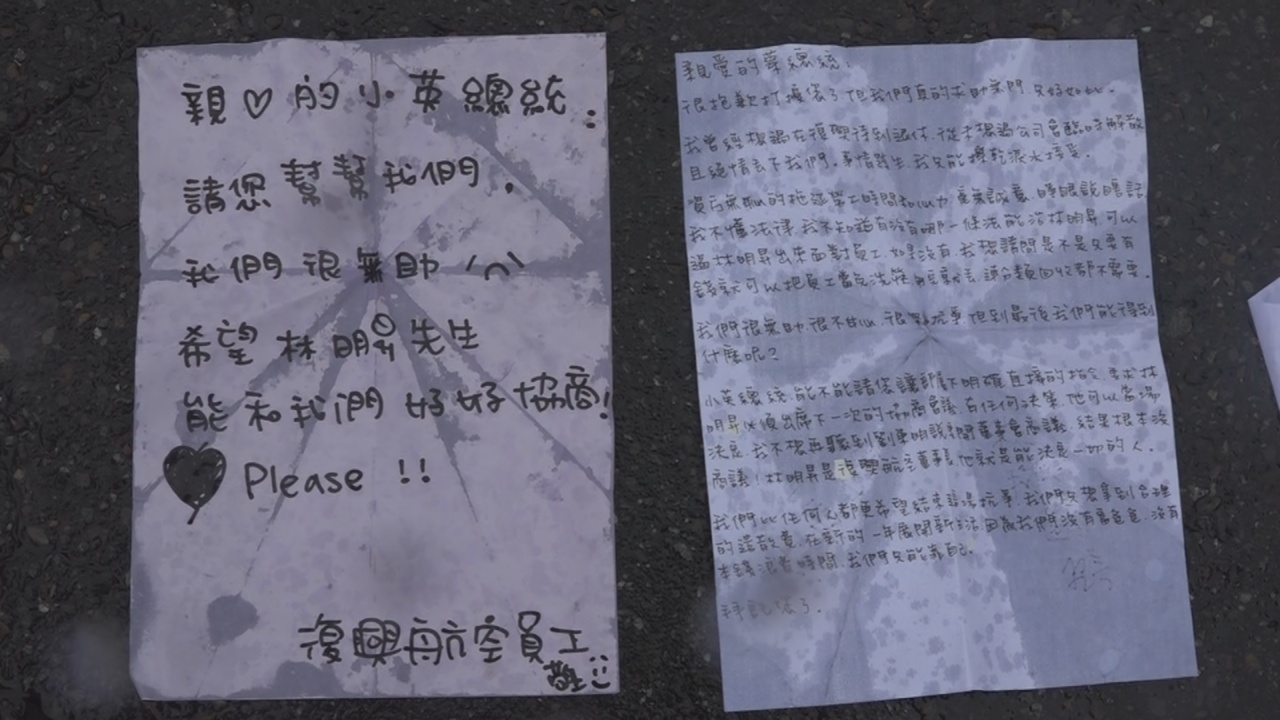 親♡的小英總統：
請您幫幫我們，
我們很無助
希望林明昇先生
能和我們好好協商!
Please !!
復興航空員工
敬
親愛的蔡總統：
很抱歉打擾您了但我們真的求助無門，只好如此。
我曾經想過在復興待到退休，從未想過公司會臨時解散
且絕情丟下我們。事情發生我只能擦乾淚水接受。
睜眼說瞎話
我不懂法律，我不知道有沒有哪一任法能治林明昇可以
逼林明昇出來面對員工，如果沒有，我想請問是不是只要有
錢就可以把員工當免洗筷用完就丟，連分類回收都不需要。
我們很無助，很不甘心，很 抗爭，但到最後我們能得到
什麼呢？
小英總統，能不能請您讓部 下明確直接的指令，要求林
明昇必須出席下一次的協商會議，有任何決策，他可以當場
決定，我不想再聽到劉東明說 董事會商議，結果根本沒
商議！林明昇是復興航空董事長，他就是能決定一切的人。
我們比任何人都更希望結束這場抗爭，我們只想拿到合理
的遣散費，在新的一年展開新生活，因為我們沒有富爸爸，沒有
本錢浪費時間，我們只能靠自己。
拜託您了。